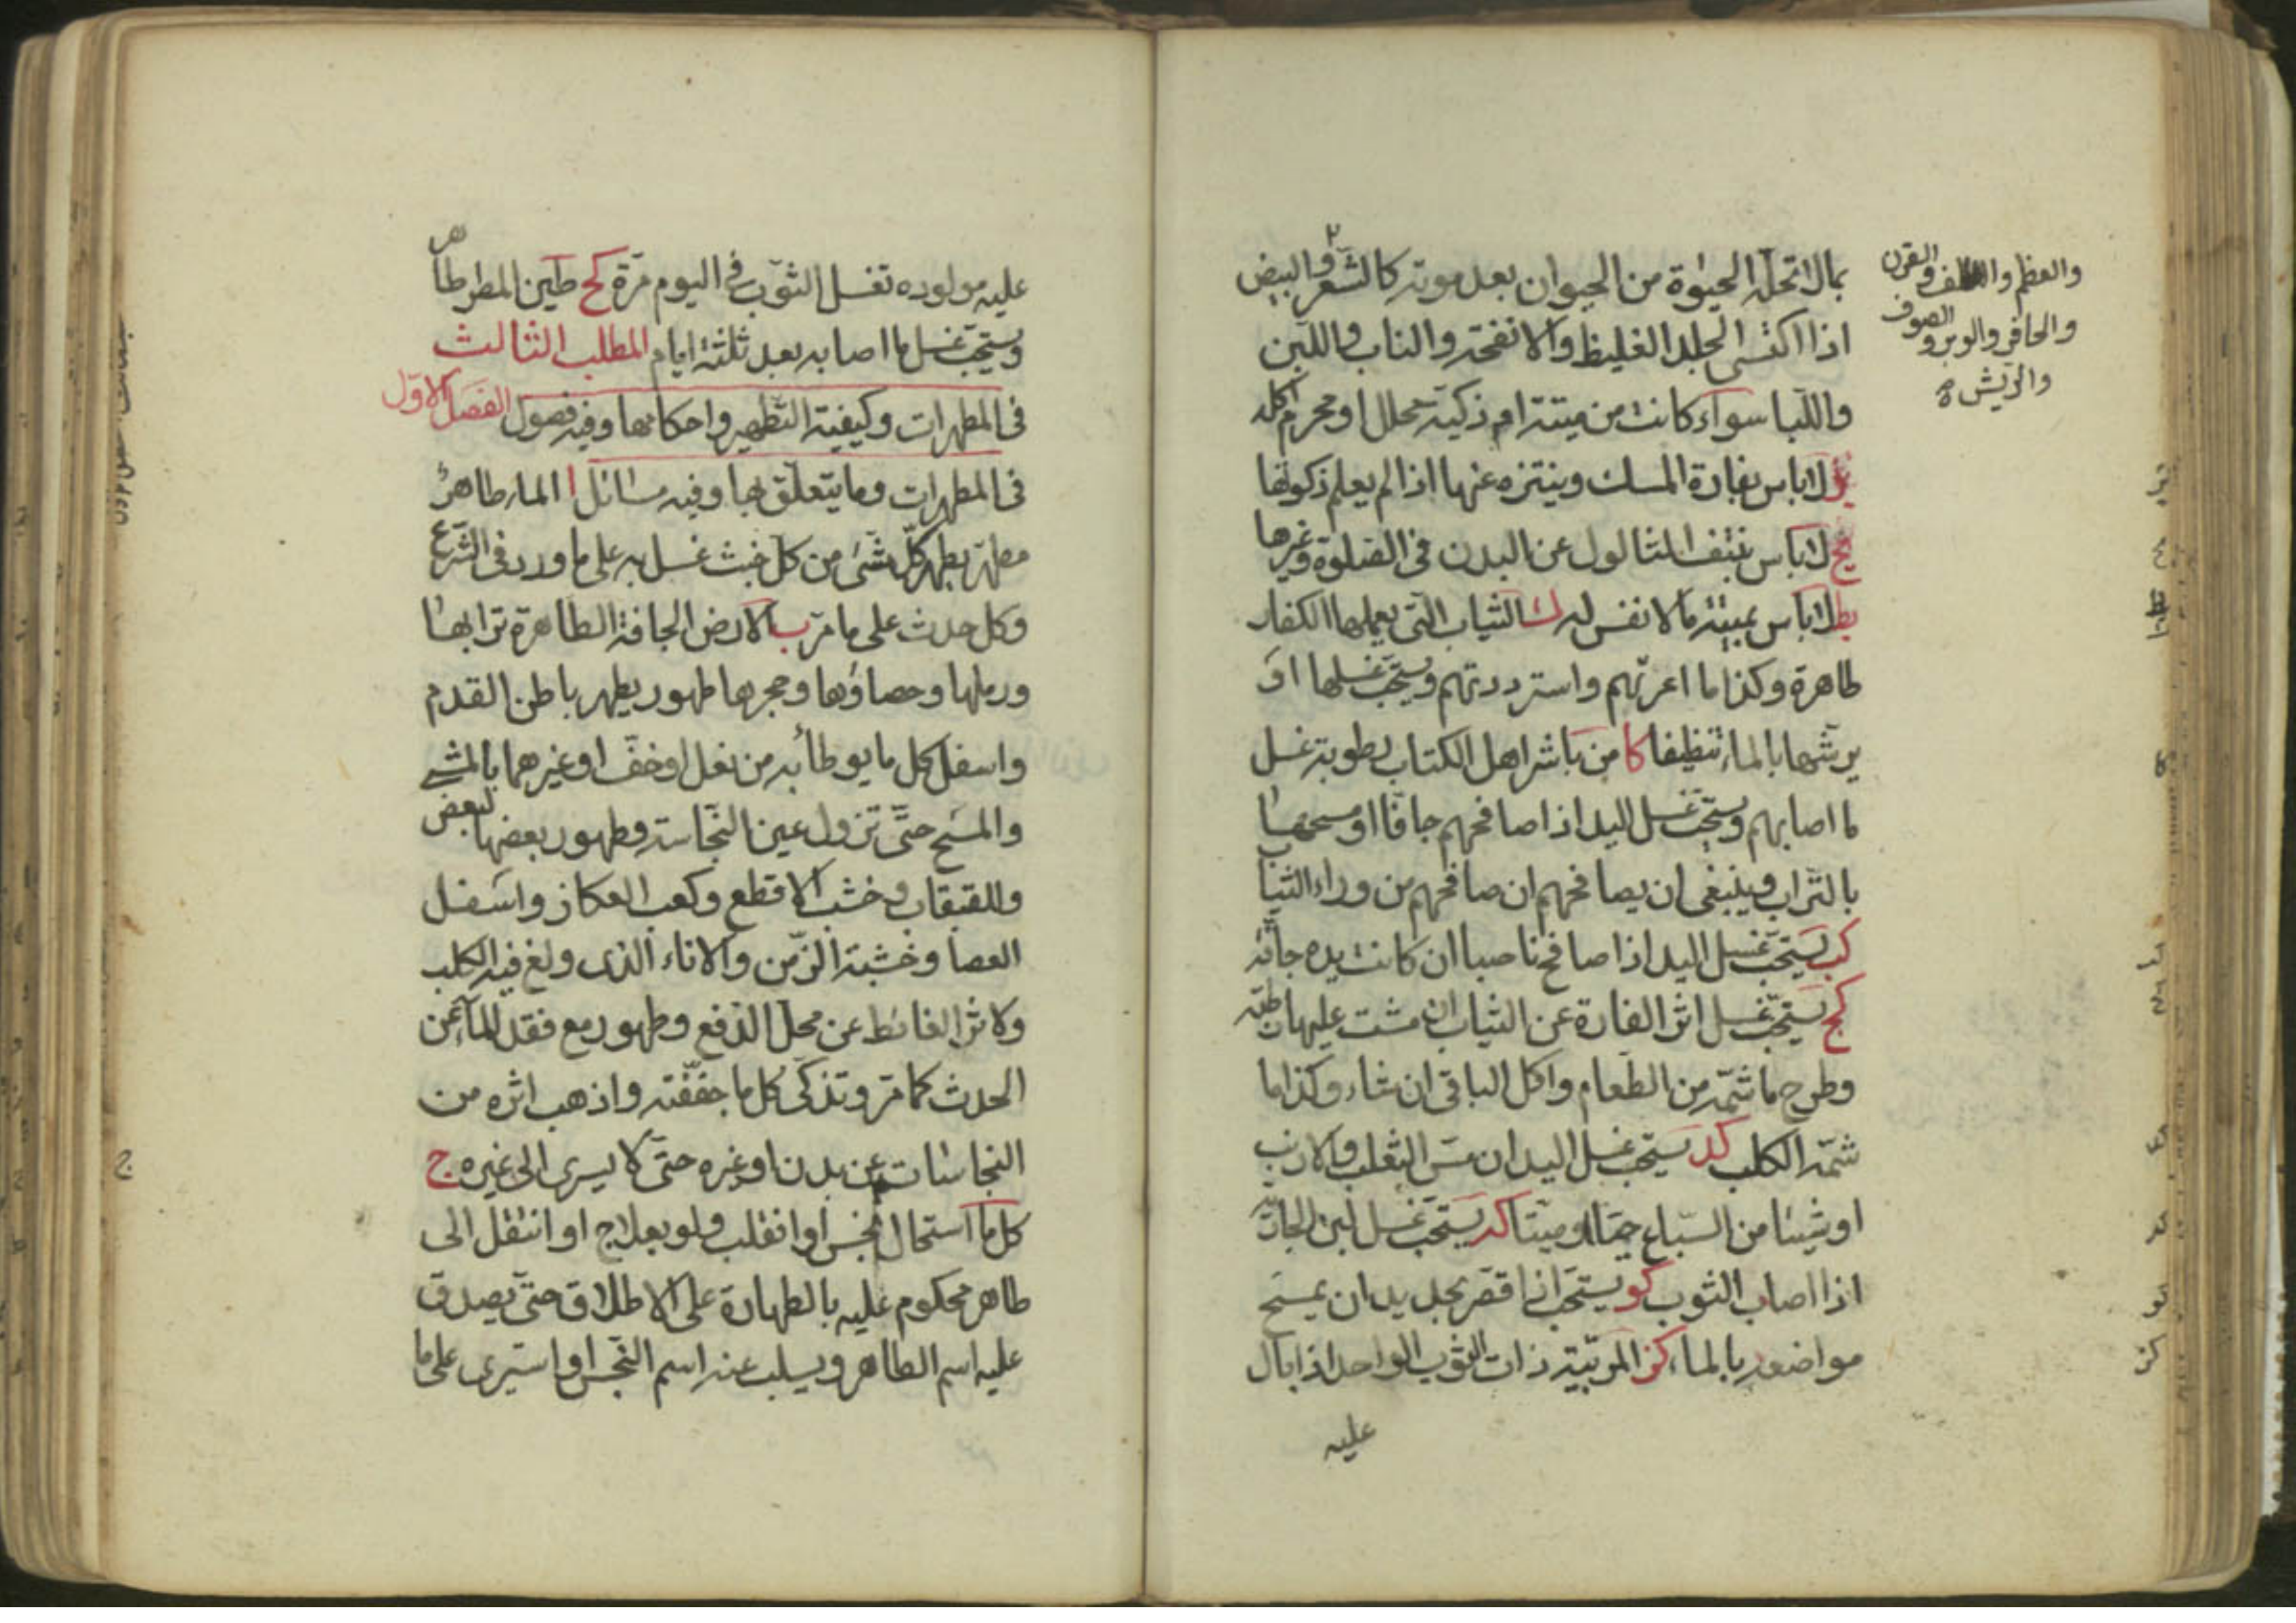 بما لا تحله الحيوة من الحيوان بعد موته كالشعر والبيض
والعظم والظلف والقرن
والحافر والوبر والصوف
والريش
اذا اكتسى الجلد الغليظ والانفحة والناب واللبن
واللبا سواء كانت من ميتة ام ذكية محلل او محرم اكله
يز لا باس بفارة المسك ويتنزه عنها اذا لم يعلم ذكوتها
يح لا باس بنتف الثالول عن البدن في الصلوة وغيرها
يط لا باس بميتة ما لا نفس له ك الثياب التي يعملها الكفار
طاهرة وكذا ما اعرتهم واسترددتهم ويستحب غسلها او
يرشها بالماء تنظيفا كا من باشر اهل الكتاب برطوبة غسل
ما اصابهم ويستحب غسل اليد اذا صافحهم جافا او مسحها
بالتراب وينبغي ان يصافحهم ان صافحهم من وراء الثياب
كب يستحب غسل اليد اذا صافح ناصبا ان كانت يده جافة
كج يستحب غسل اثر الفارة عن الثياب ان مشت عليها رطبة
وطرح ما شمته من الطعام واكل الباقي ان شاء وكذا ما
شمه الكلب كد يستحب غسل اليد ان مس الثعلب والارنب
او شيئا من السباع حيا او ميتا كه يستحب غسل لبن الجارية
اذا اصاب الثوب كو يستحب اذا قص بحديد ان يمسح
مواضعه بالماء كز المربية ذات الثوب الواحد اذا بال
عليه
عليه مولوده تغسل الثوب في اليوم مرة كح طين المطر طاهر
ويستحب غسل ما اصابه بعد ثلثة ايام المطلب الثالث
في المطهرات وكيفية التطهير واحكامها وفيه فصول الفصل الاول
في المطهرات وما يتعلق بها وفيه مسائل ا الماء طاهر
مطهر يطهر كل شئ من كل خبث غسل به على ما ورد في الشرع
وكل حدث على ما مر ب الارض الجافة الطاهرة ترابها
ورملها وحصاؤها وحجرها طهور يطهر باطن القدم
واسفل كل ما يوطأ به من نعل او خف او غيرهما بالمشي
والمسح حتى تزول عين النجاسة وطهور بعضها لبعض
وللقبقاب وخشب الاقطع وكعب العكاز واسفل
العصا وخشبة الزمن والاناء الذي ولغ فيه الكلب
ولاثر الغائط عن محل الدفع وطهور مع فقد الماء عن
الحدث كما مر وتذكى كل ما جففته واذهب اثره من
النجاسات عن بدن او غيره حتى لا يسرى الى غيره ج
كل ما استحال نجس او انقلب ولو بعلاج او انتقل الى
طاهر محكوم عليه بالطهارة على الاطلاق حتى يصدق
عليه اسم الطاهر ويسلب عنه اسم النجس او استبرى على ما